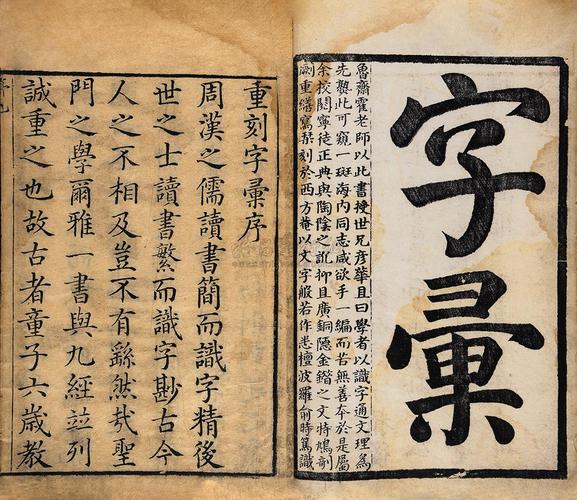 字彙
魯齋霍老師以此書授世兄彥華且曰學者以識字通文理為
先此可窺一斑海內同志咸欲手一編而苦無善本於是屬
余校閱寧徒正典與陶陰之訛抑且廣銅隱金鍇之文特鳩剞
劂重繕寫栞刻於西方菴以文字般若作悉檀波羅俞時篤識
重刻字彙序
周漢之儒讀書簡而識字精後
世之士讀書繁而識字尠古今
人之不相及豈不有繇然㢤聖
門之學爾雅一書與九經竝列
誠重之也故古者童子六歲教